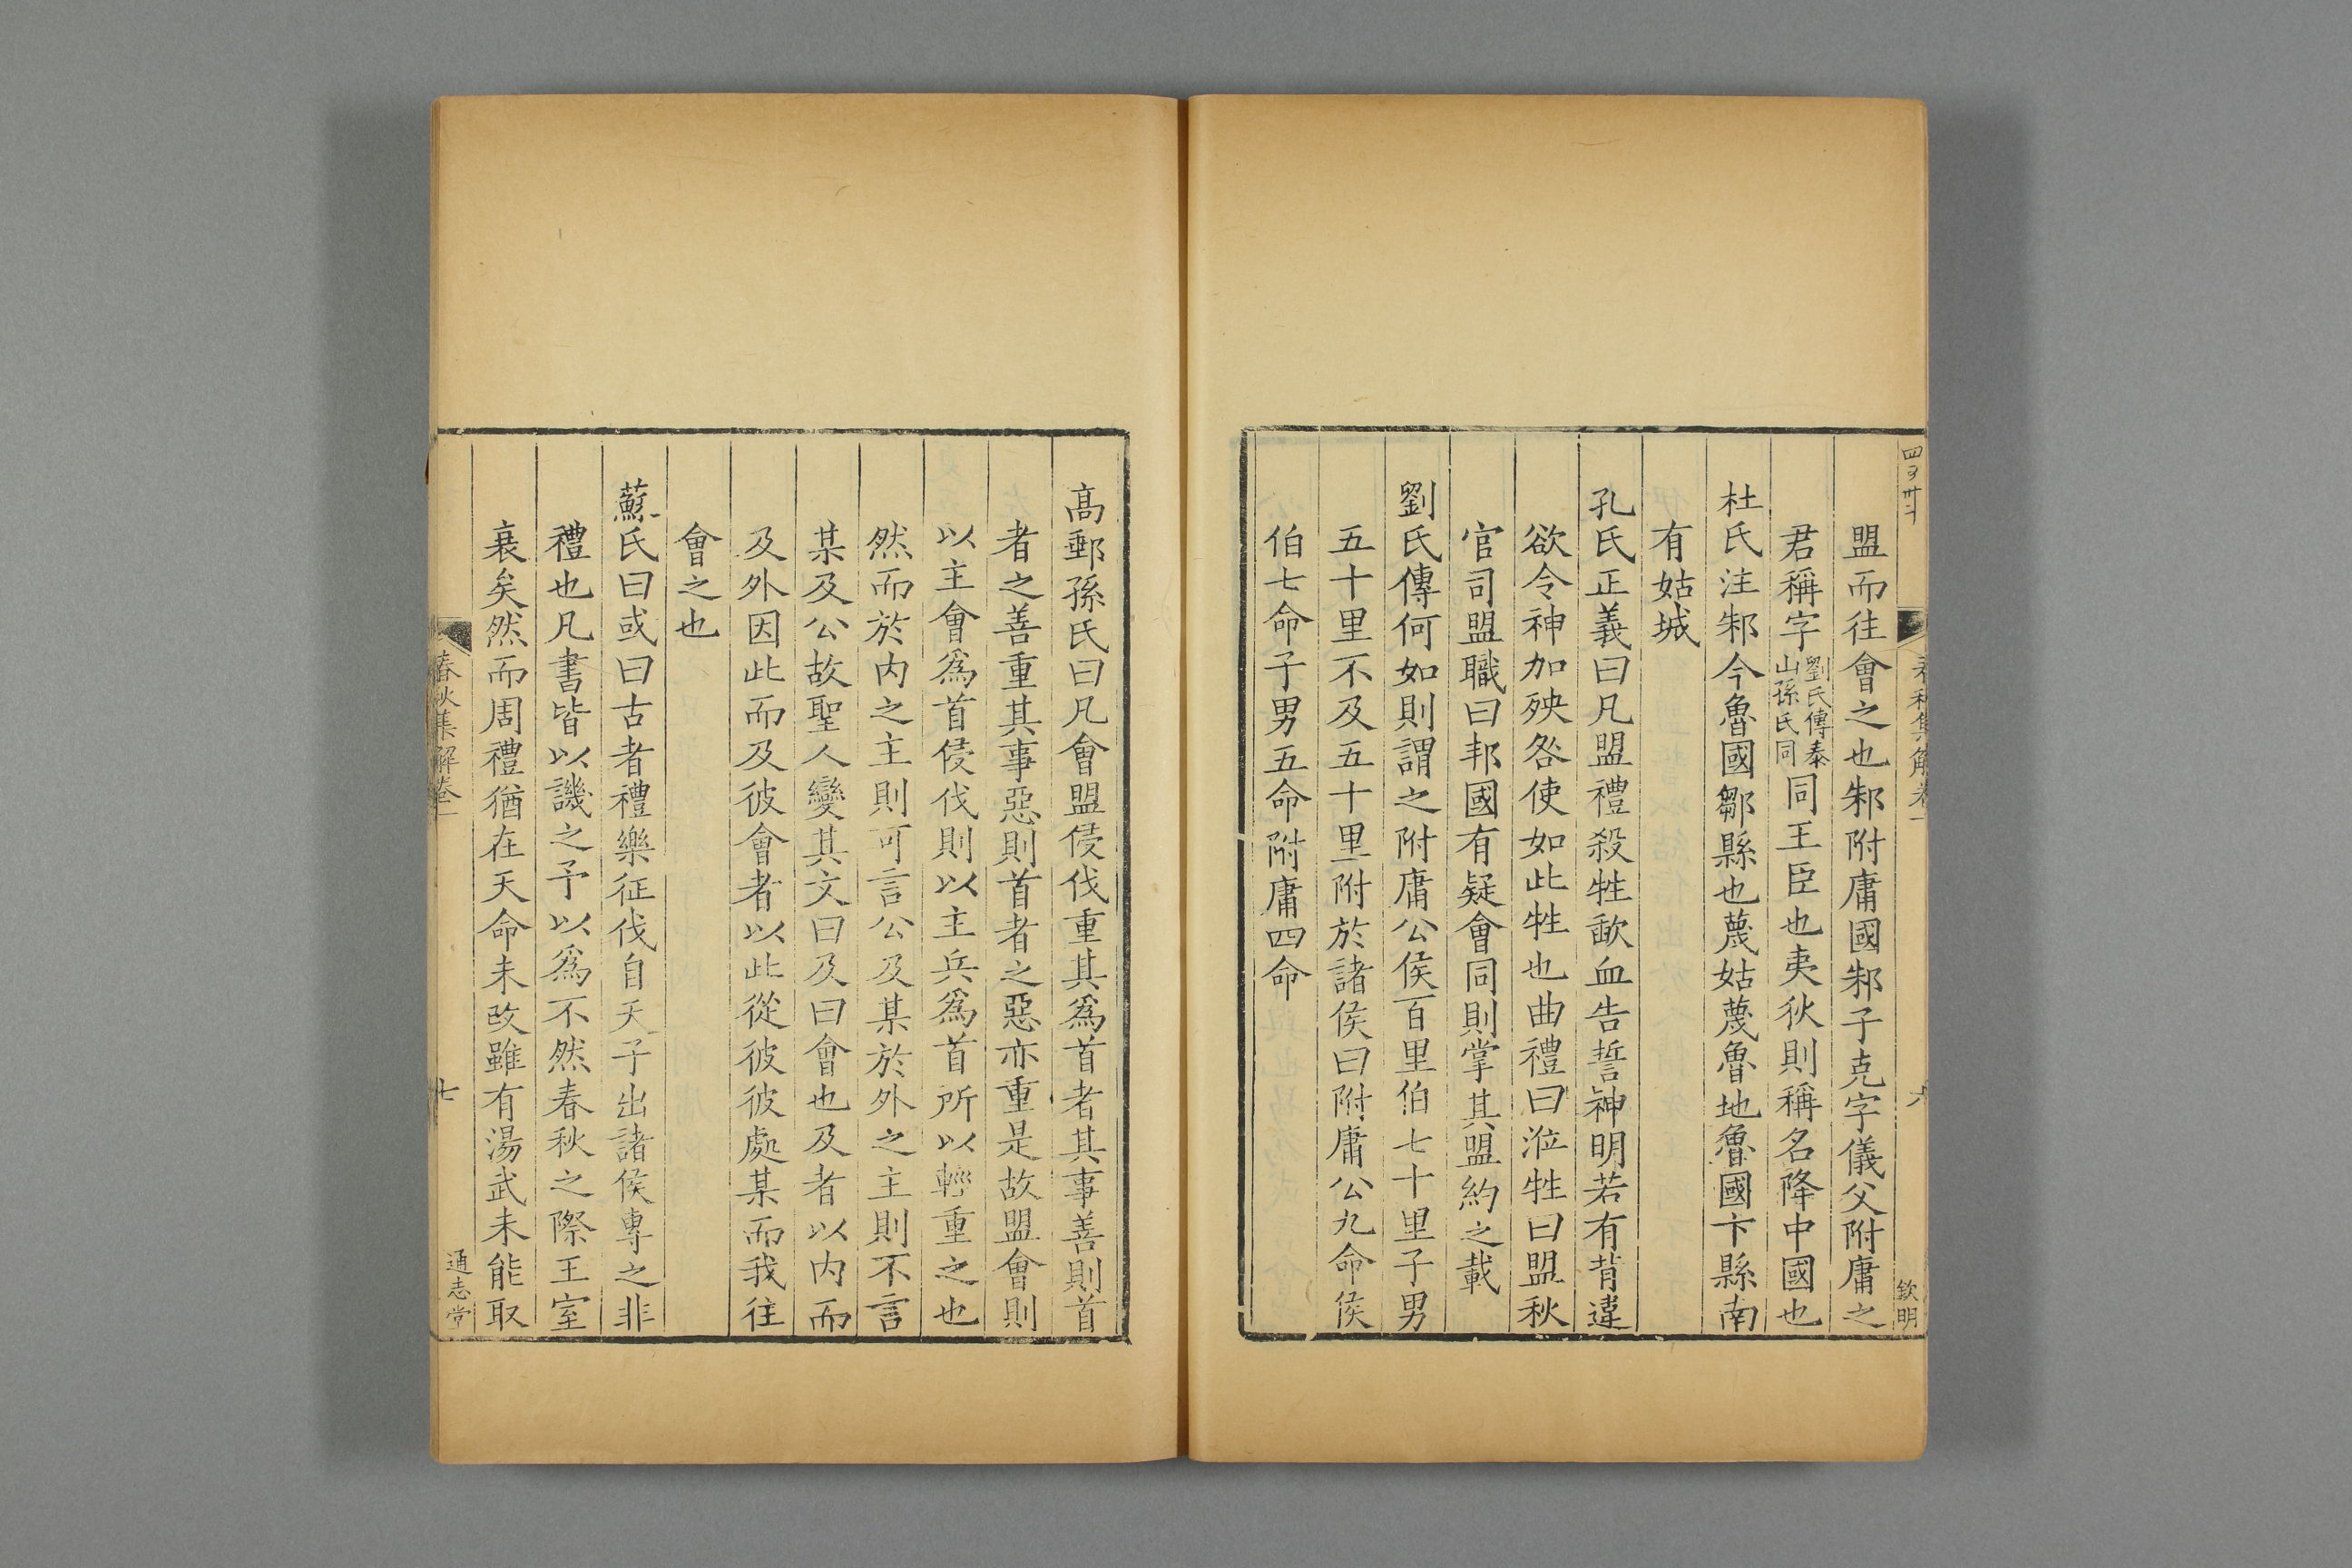 四百卄二
春秋集解卷一
六
欽明
盟而往會之也邾附庸國邾子克字儀父附庸之
君稱字劉氏傳泰山孫氏同同王臣也夷狄則稱名降中國也
杜氏注邾今魯國鄒縣也蔑姑蔑魯地魯國卞縣南
有姑城
孔氏正義曰凡盟禮殺牲歃血告誓神明若有背違
欲令神加殃咎使如此牲也曲禮曰涖牲曰盟秋
官司盟職曰邦國有疑會同則掌其盟約之載
劉氏傳何如則謂之附庸公侯百里伯七十里子男
五十里不及五十里附於諸侯曰附庸公九命侯
伯七命子男五命附庸四命
高郵孫氏曰凡會盟侵伐重其爲首者其事善則首
者之善重其事惡則首者之惡亦重是故盟會則
以主會爲首侵伐則以主兵爲首所以輕重之也
然而於内之主則可言公及某於外之主則不言
某及公故聖人變其文曰及曰會也及者以内而
及外因此而及彼會者以此從彼彼處某而我往
會之也
蘇氏曰或曰古者禮樂征伐自天子出諸侯專之非
禮也凡書皆以譏之予以爲不然春秋之際王室
衰矣然而周禮猶在天命未改雖有湯武未能取
春秋集解卷一
七
通志堂